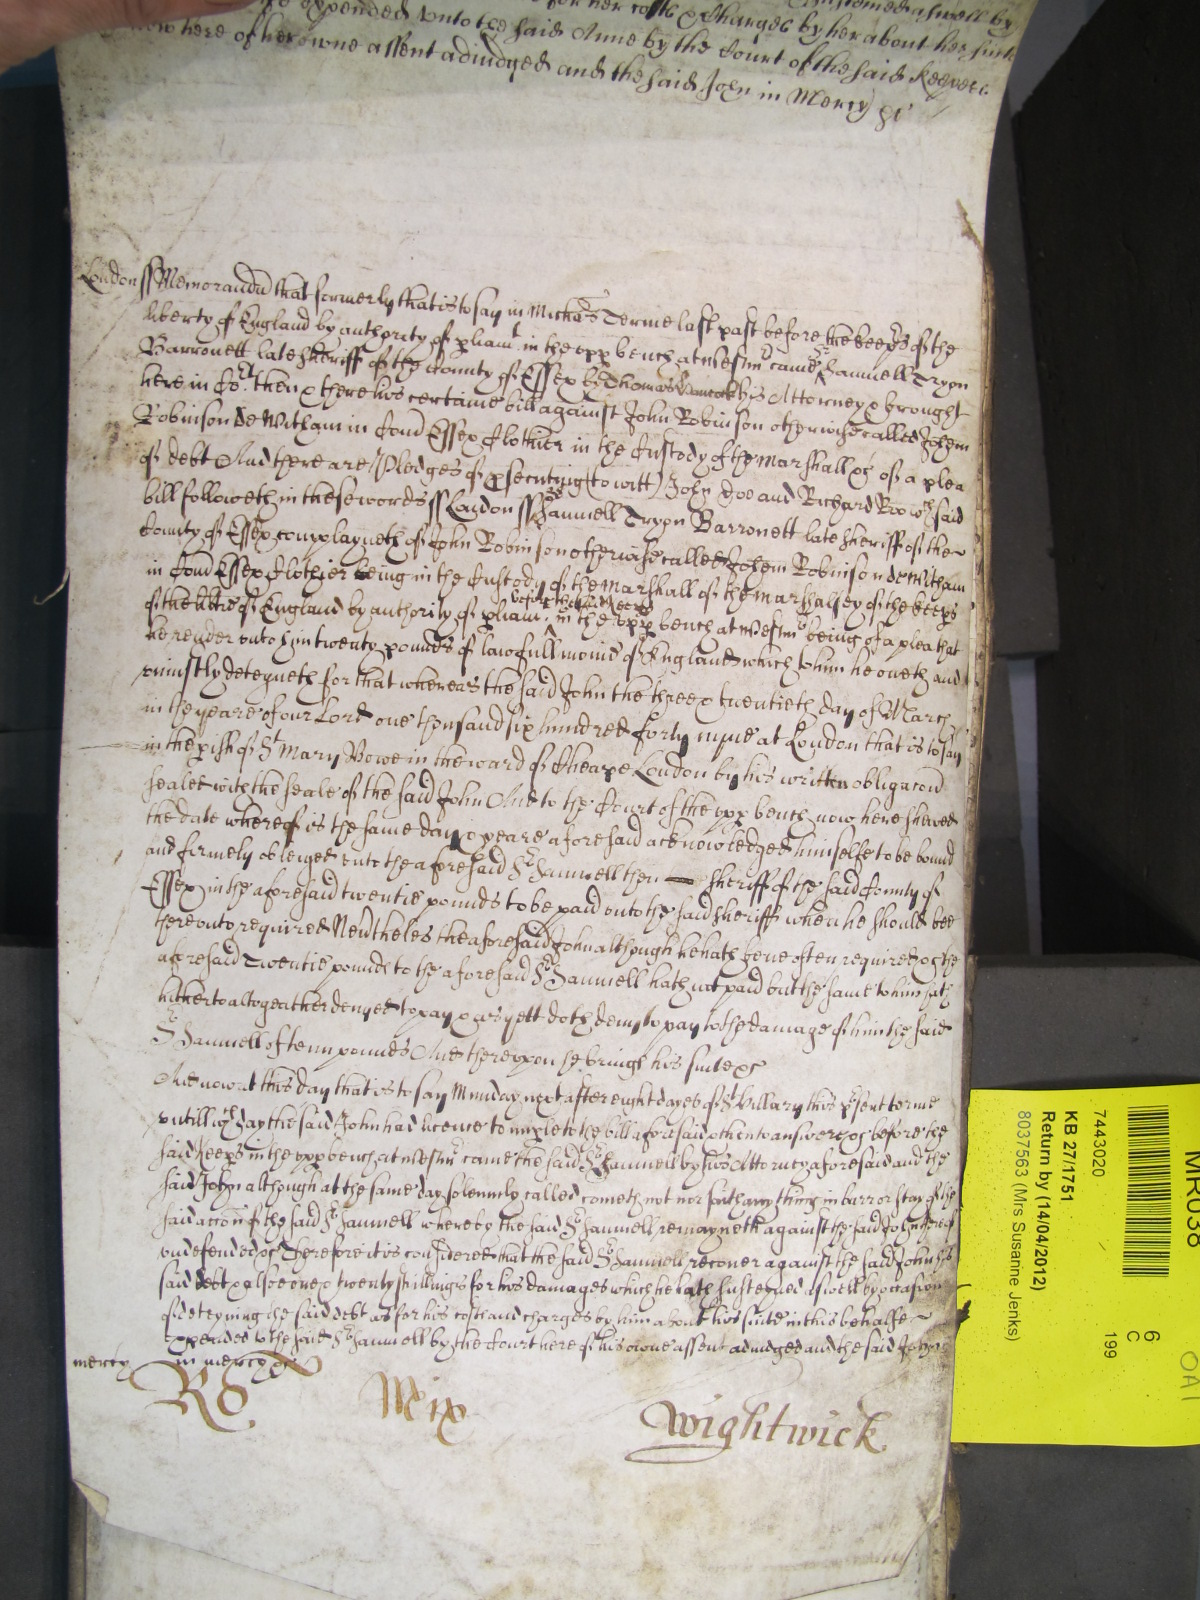 expended unto the said Anne by the Court of the said Keepers
now here of her owne assent adiudged and the said John in Mercy &c
London ss Memorandu that formerly that is to say in Michas Terme last past before the keepers of the
liberty of England by authority of pliamt in the upp bench at Westmr came Sr Samuell Tryon
Barronett late sheriff of the County of Essex by Thomas his Attorney & brought
here in Cort then & there his certaine bill against John Robinson otherwise called Johem
Robinson de Witham in Com Essex Clothier in the Custody of the Marshall &c of a plea
of debt And there are Pledges of psecuting (to witt) John Doe and Richard Roo wch said
bill followeth in these words ss London ss Sr Samuell Tryon Barronett late sheriff of the
County of Essex complayneth of John Robinson otherwise called Johem Robinson de Witham
in Com Essex Clothier being in the Custody of the Marshall of the Marshalsey of the keeps
of the libtie of England by authority of pliamt before the said keeps in the upp bench at Westmr being of a plea that
he render unto him twenty pounds of lawfull monie of England which to him he oweth and
uniustly deteyneth for that whereas the said John the three & twentieth day of March
in the yeare of our Lord one thousand six hundred forty nyne at London that is to say
in the pish of St Mary Bowe in the ward of Cheape London by his written obligacon
sealed with the seale of the said John And to the Court of the upp bench now here shewed
the date whereof is the same day & yeare aforesaid acknowledged himselfe to be bound
and firmely obleiged unto the aforesaid Sr Samuell then sheriff of the said County of
Essex in the aforesaid twentie pounds to be paid unto the said sheriff when he should bee
thereunto required Nevertheles the aforesaid John although he hath bene often required &c the
aforesaid Twentie pounds to the aforesaid Sr Samuell hath not paid but the same to him hath
hitherto altogeather denyed to pay & as yett doth deny to pay to the damage of him the said
Sr Samuell of tenn pounds And thereupon he brings his suite &c
And now at this day that is to say Munday next after eight dayes of St Hillary this psent terme
untill wch day the said John had licence to imple to the bill aforesaid & then to answere &c before the
said keeps in the upp bench at Westmr came the said Sr Samuell by his Attorney aforesaid and the
said John although at the same day solemnly called cometh not nor saith any thing in barr or stay of the
said accon of the said Sr Samuell whereby the said Sr Samuell remayneth against the said John thereof
undefended &c Therefore it is considered that the said Sr Samuell recover against the said John his
said debt & alsoe one & twenty shillings for his damages which he hath susteyned aswell by occasion
of deteyning the said debt as for his costs and charges by him about his suite in this behalfe
expended to the said Sr Samuell by the Court here of his owne assent adiudged and the said John
mercy in mercy &c
Ro Mix Wightwick
MR038
7443020
KB 27/1751
Return by (14/04/2012)
8037563 (Mrs Susanne Jenks)
6
C
199